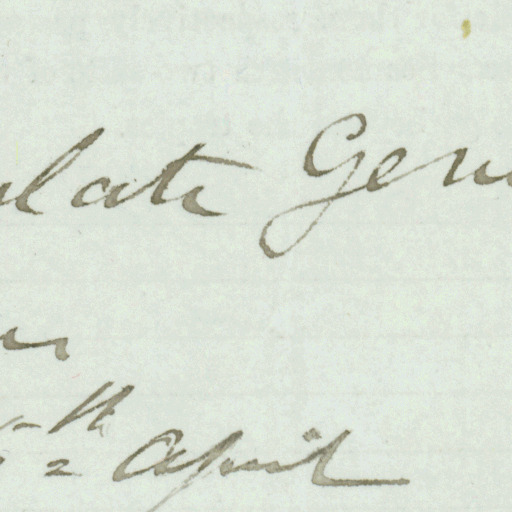 ulate Gen
5th April